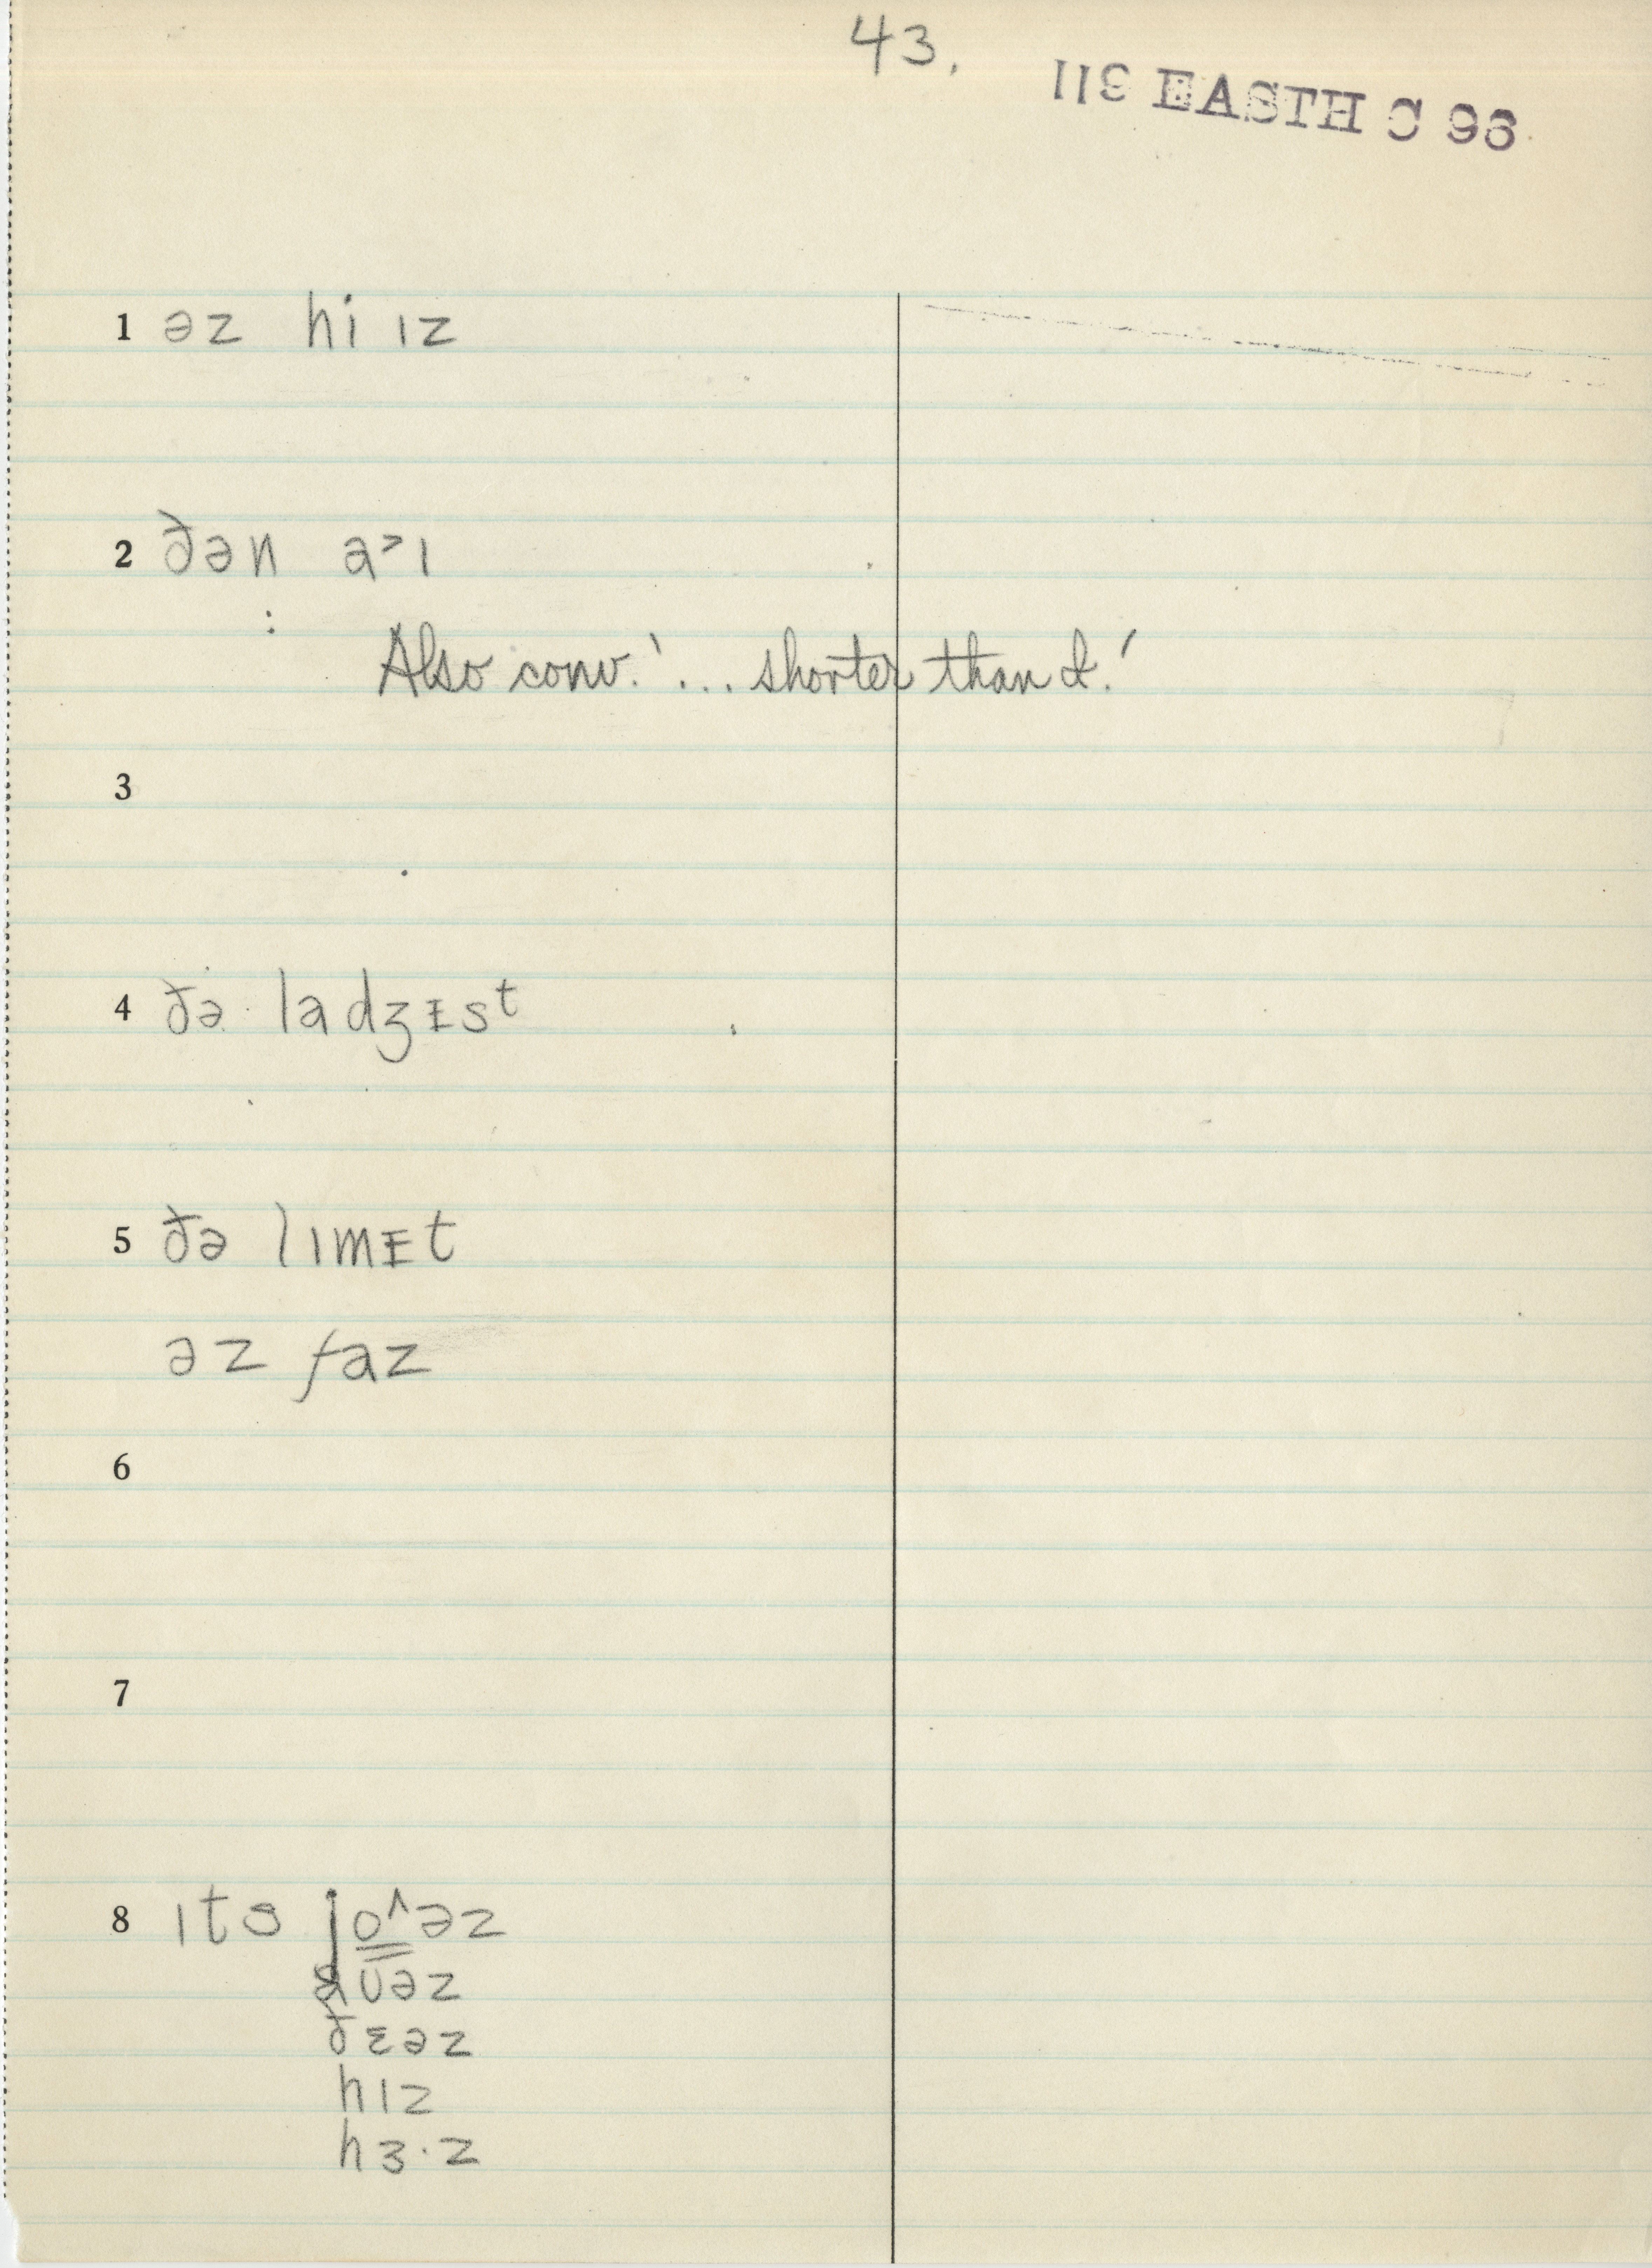 43.
113 EASTH C 96
1 əz hi ɪz
2 ðən a˃ɪ
: Also conv. '... shorter than I.'
3
4 ðə ladʒɪsᵗ
5 ðə lɪmɪt
əz faz
6
7
8 ɪts jo^əz
aʊəz
ðɛəz
hɪz
hɜ·z